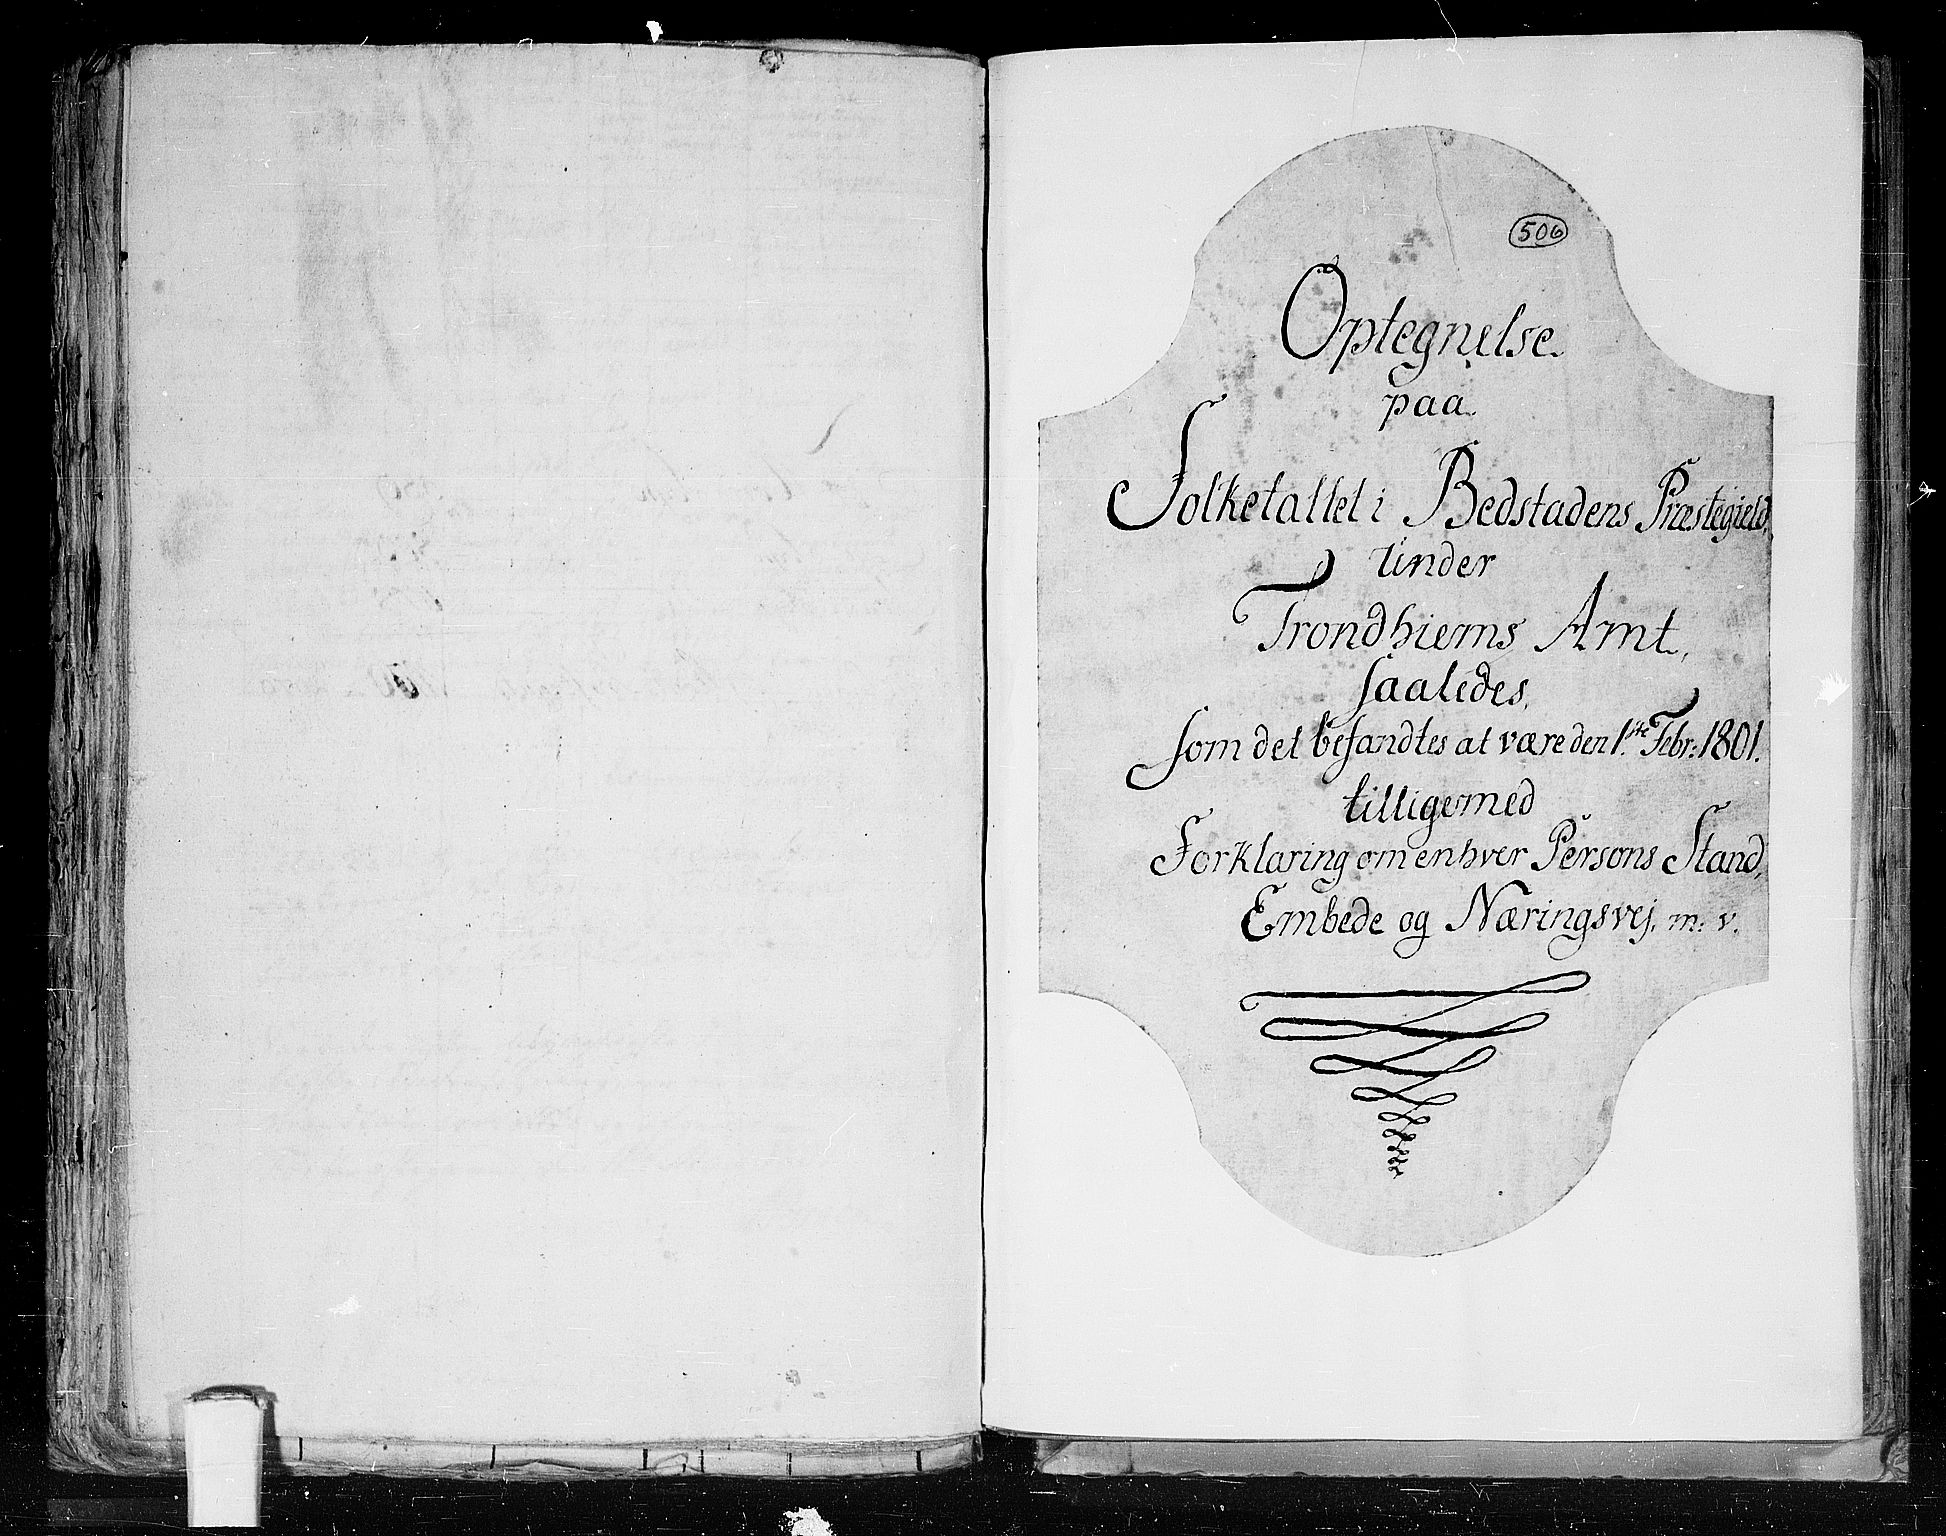 506
Optegnelse
paa
Folketallet i Bedstadens Præstegield,
under
Trondhiems Amt,
saaledes,
som det befandtes at være den 1.ste Febr: 1801.
tilligemed
Forklaring om enhver Persons Stand,
Embede og Næringsvej, m: v.